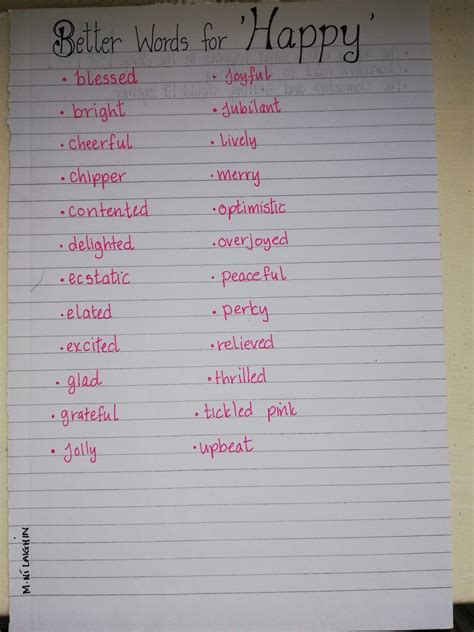 Better Words for 'Happy'
• blessed
• bright
• cheerful
• chipper
• contented
• delighted
• ecstatic
• elated
• excited
• glad
• grateful
• Jolly
• Joyful
• Jubilant
• Lively
• merry
• optimistic
• overjoyed
• peaceful
• perky
• relieved
• thrilled
• tickled pink
• upbeat
M. Ní LAIGHIN